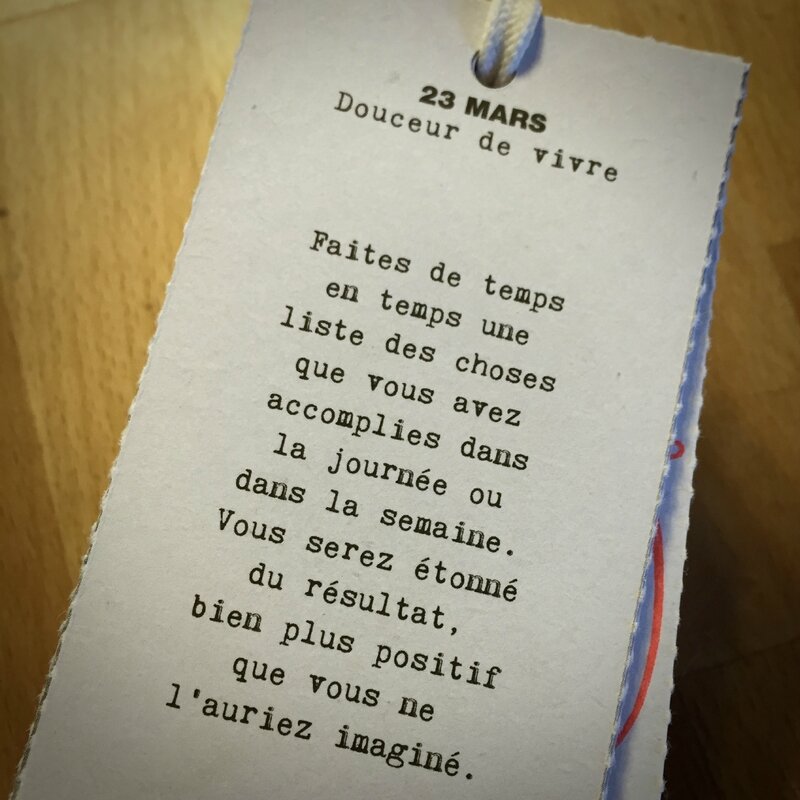 23 MARS
Douceur de vivre
Faites de temps
en temps une
liste des choses
que vous avez
accomplies dans
la journée ou
dans la semaine.
Vous serez étonné
du résultat,
bien plus positif
que vous ne
l'auriez imaginé.